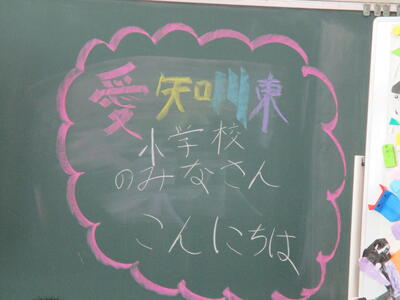 愛知川東
小学校
のみなさん
こんにちは